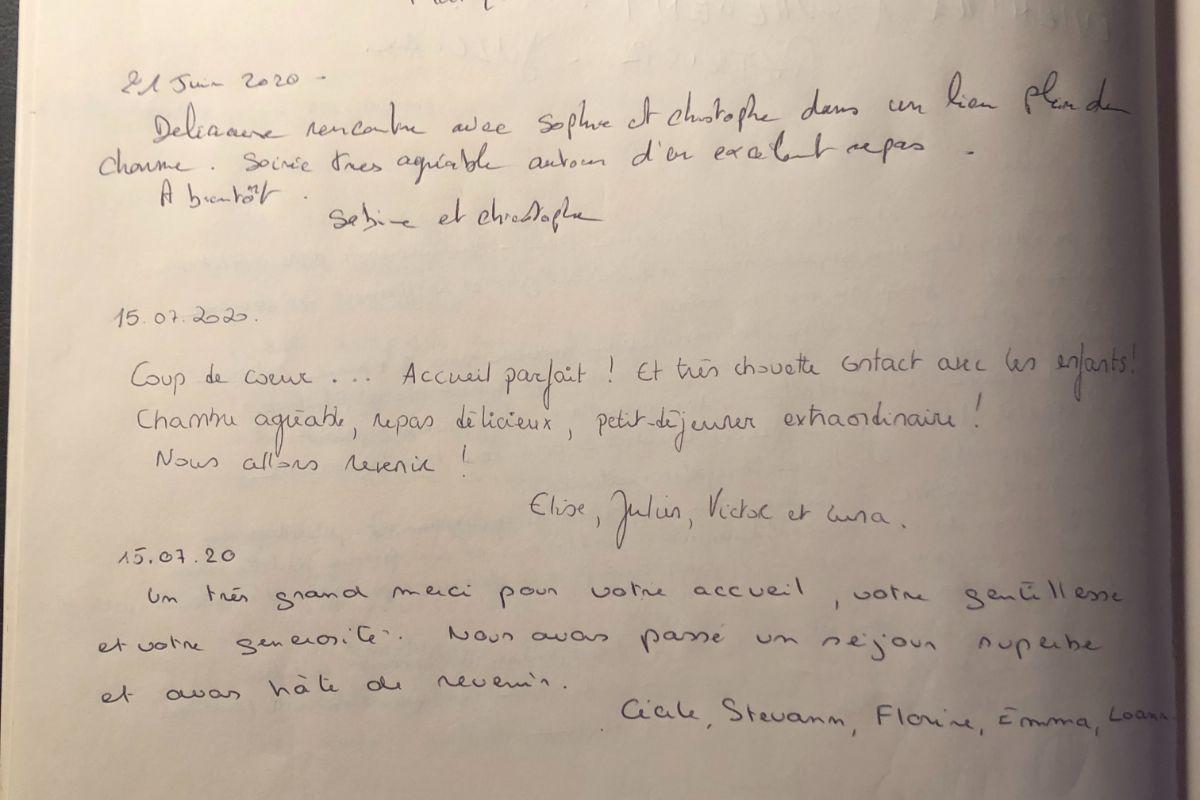 21 Juin 2020 -
Delicieuse rencontre avec Sophie et christophe dans un lieu plein de
charme. Soirée très agréable autour d'un excelent repas.
A bientôt.
Sabine et christophe
15.07.2020.
Coup de coeur ... Accueil parfait ! Et très chouette contact avec les enfants!
Chambre agréable, repas délicieux, petit-déjeuner extraordinaire !
Nous allons revenir !
Elise, Julien, Victor et Luna.
15.07.20
Un très grand merci pour votre accueil, votre gentillesse
et votre generosité. Nous avons passé un séjour superbe
et avons hâte de revenir.
Cécile, Stevann, Florine, Emma, Loann